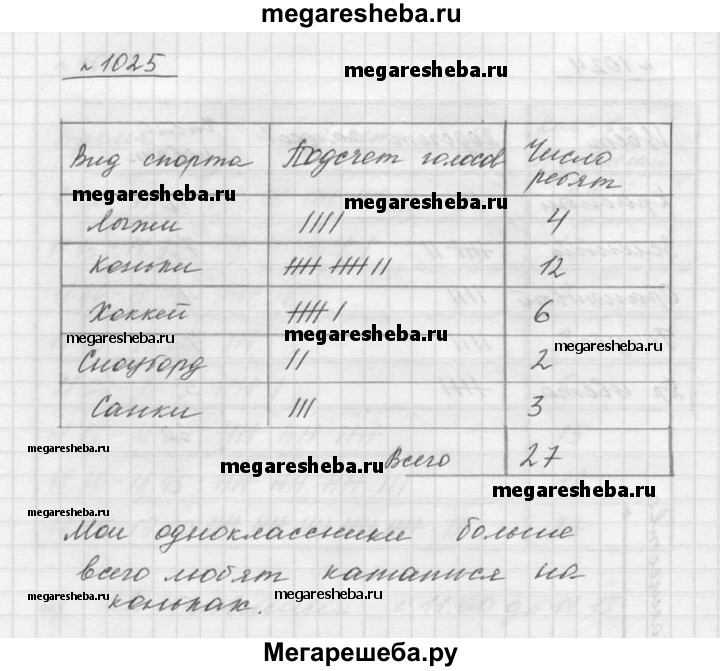 megaresheba.ru
№ 1025
megaresheba.ru
Вид спорта Подсчет голосов Число
ребят
megaresheba.ru megaresheba.ru
Лыжи //// 4
Коньки 12
Хоккей 6
megaresheba.ru
megaresheba.ru megaresheba.ru
Сноуборд // 2
Санки /// 3
megaresheba.ru
Всего 27
megaresheba.ru
megaresheba.ru
megaresheba.ru
Мои одноклассники больше
всего любят кататься на
коньках.
megaresheba.ru megaresheba.ru
Мегарешеба.ру